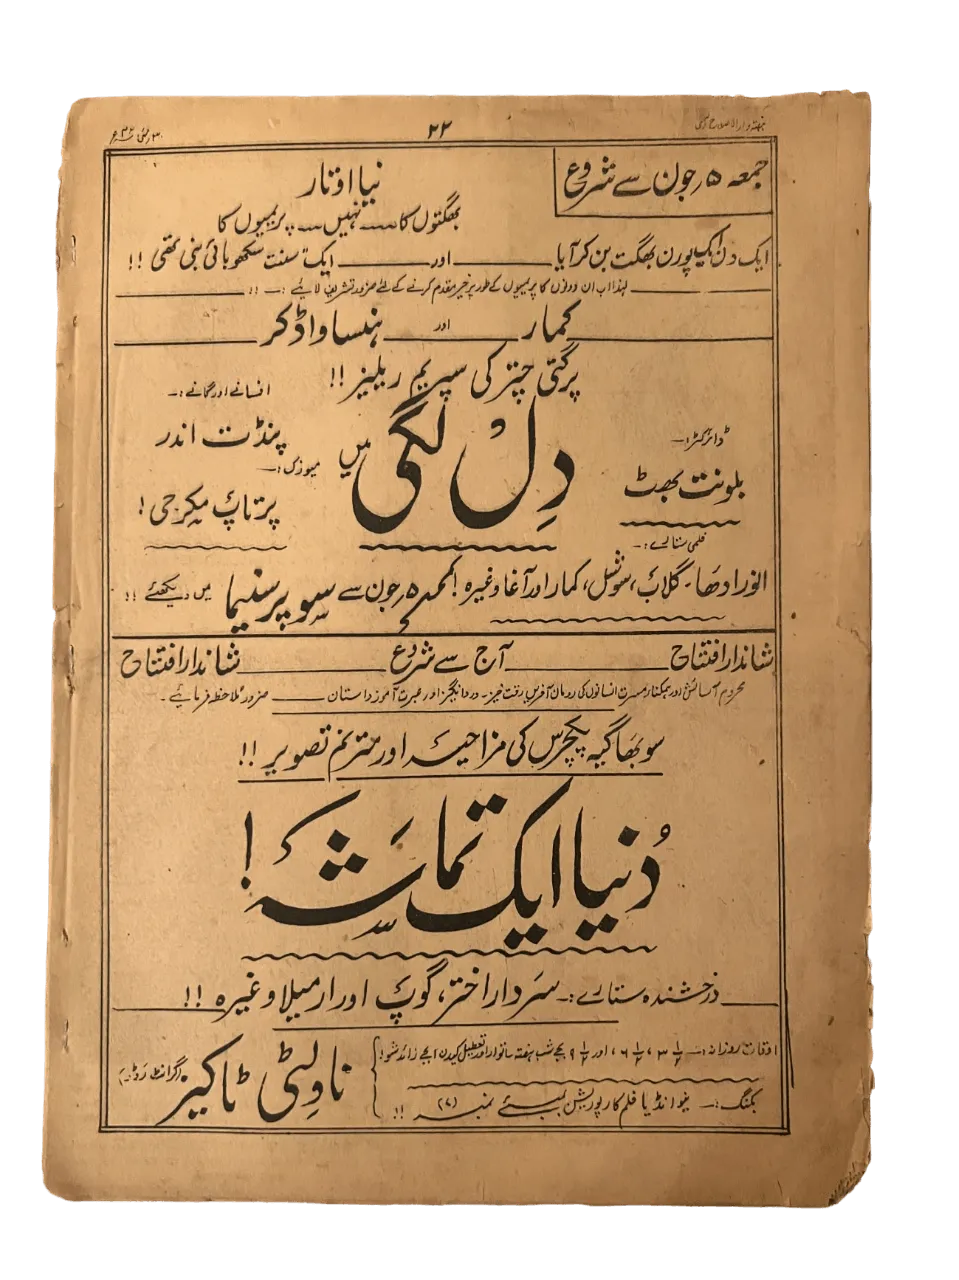 ہفتہ وار الاصلاح بمبئی
۲۲
۳۰ مئی ۴۲ء
جمعہ ۵ جون سے شروع
نیا اوتار
بھگتوں کا ــــ نہیں ــــ پریمیوں کا
ایک دن ایک پورن بھگت بن کر آیا ــــ اور ــــ ایک سنت سکھو بائی بنی تھی !!
لہٰذا اب ان دونوں کا پریمیوں کے طور پر خیر مقدم کرنے کے لئے ضرور تشریف لائیے :۔ !!
کمار ــــ اور ــــ ہنسا واڈکر
پرگتی چتر کی سپریم ریلیز !!
دِل لگی میں
ڈائریکٹر:۔
بلونت بھٹ
افسانے اور گانے:۔
پنڈت اندر
میوزک:۔
پرتاپ مکرجی!
فلمی ستارے:۔
انورادھا۔ گلاب، سوشیل، کمار اور آغا وغیرہ! جمعہ ۵ جون سے سوپر سنیما میں دیکھئے !!
شاندار افتتاح ــــ آج سے شروع ــــ شاندار افتتاح
محروم آسائش اور ہمکنار مسرت انسانوں کی رومان آفریں رقت خیز۔ درد انگیز اور عبرت آموز داستان ــــ ضرور ملاحظہ فرمائیے۔
سوبھاگیہ پکچرس کی مزاحیہ اور مترنم تصویر !!
دُنیا ایک تماشہ!
درخشندہ ستارے:۔ سردار اختر، گوپ اور ارمیلا وغیرہ !!
اوقات روزانہ:۔ ۳½، ۶½، اور ۹½ بجے شب ہفتہ اتوار اور تعطیل کے دن ۱ بجے زائد شو!
بکنگ:۔ نیو انڈیا فلم کارپوریشن بمبئے نمبر (۷) !!
ناولٹی ٹاکیز (گرانٹ روڈ۔)